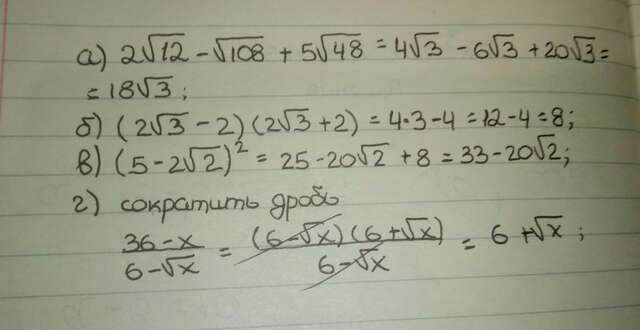 а) 2√12 - √108 + 5√48 = 4√3 - 6√3 + 20√3 =
= 18√3;
б) (2√3 - 2)(2√3 + 2) = 4·3 - 4 = 12 - 4 = 8;
в) (5 - 2√2)² = 25 - 20√2 + 8 = 33 - 20√2;
г) сократить дробь
(36 - x)/(6 - √x) = ((6 - √x)(6 + √x))/(6 - √x) = 6 + √x;